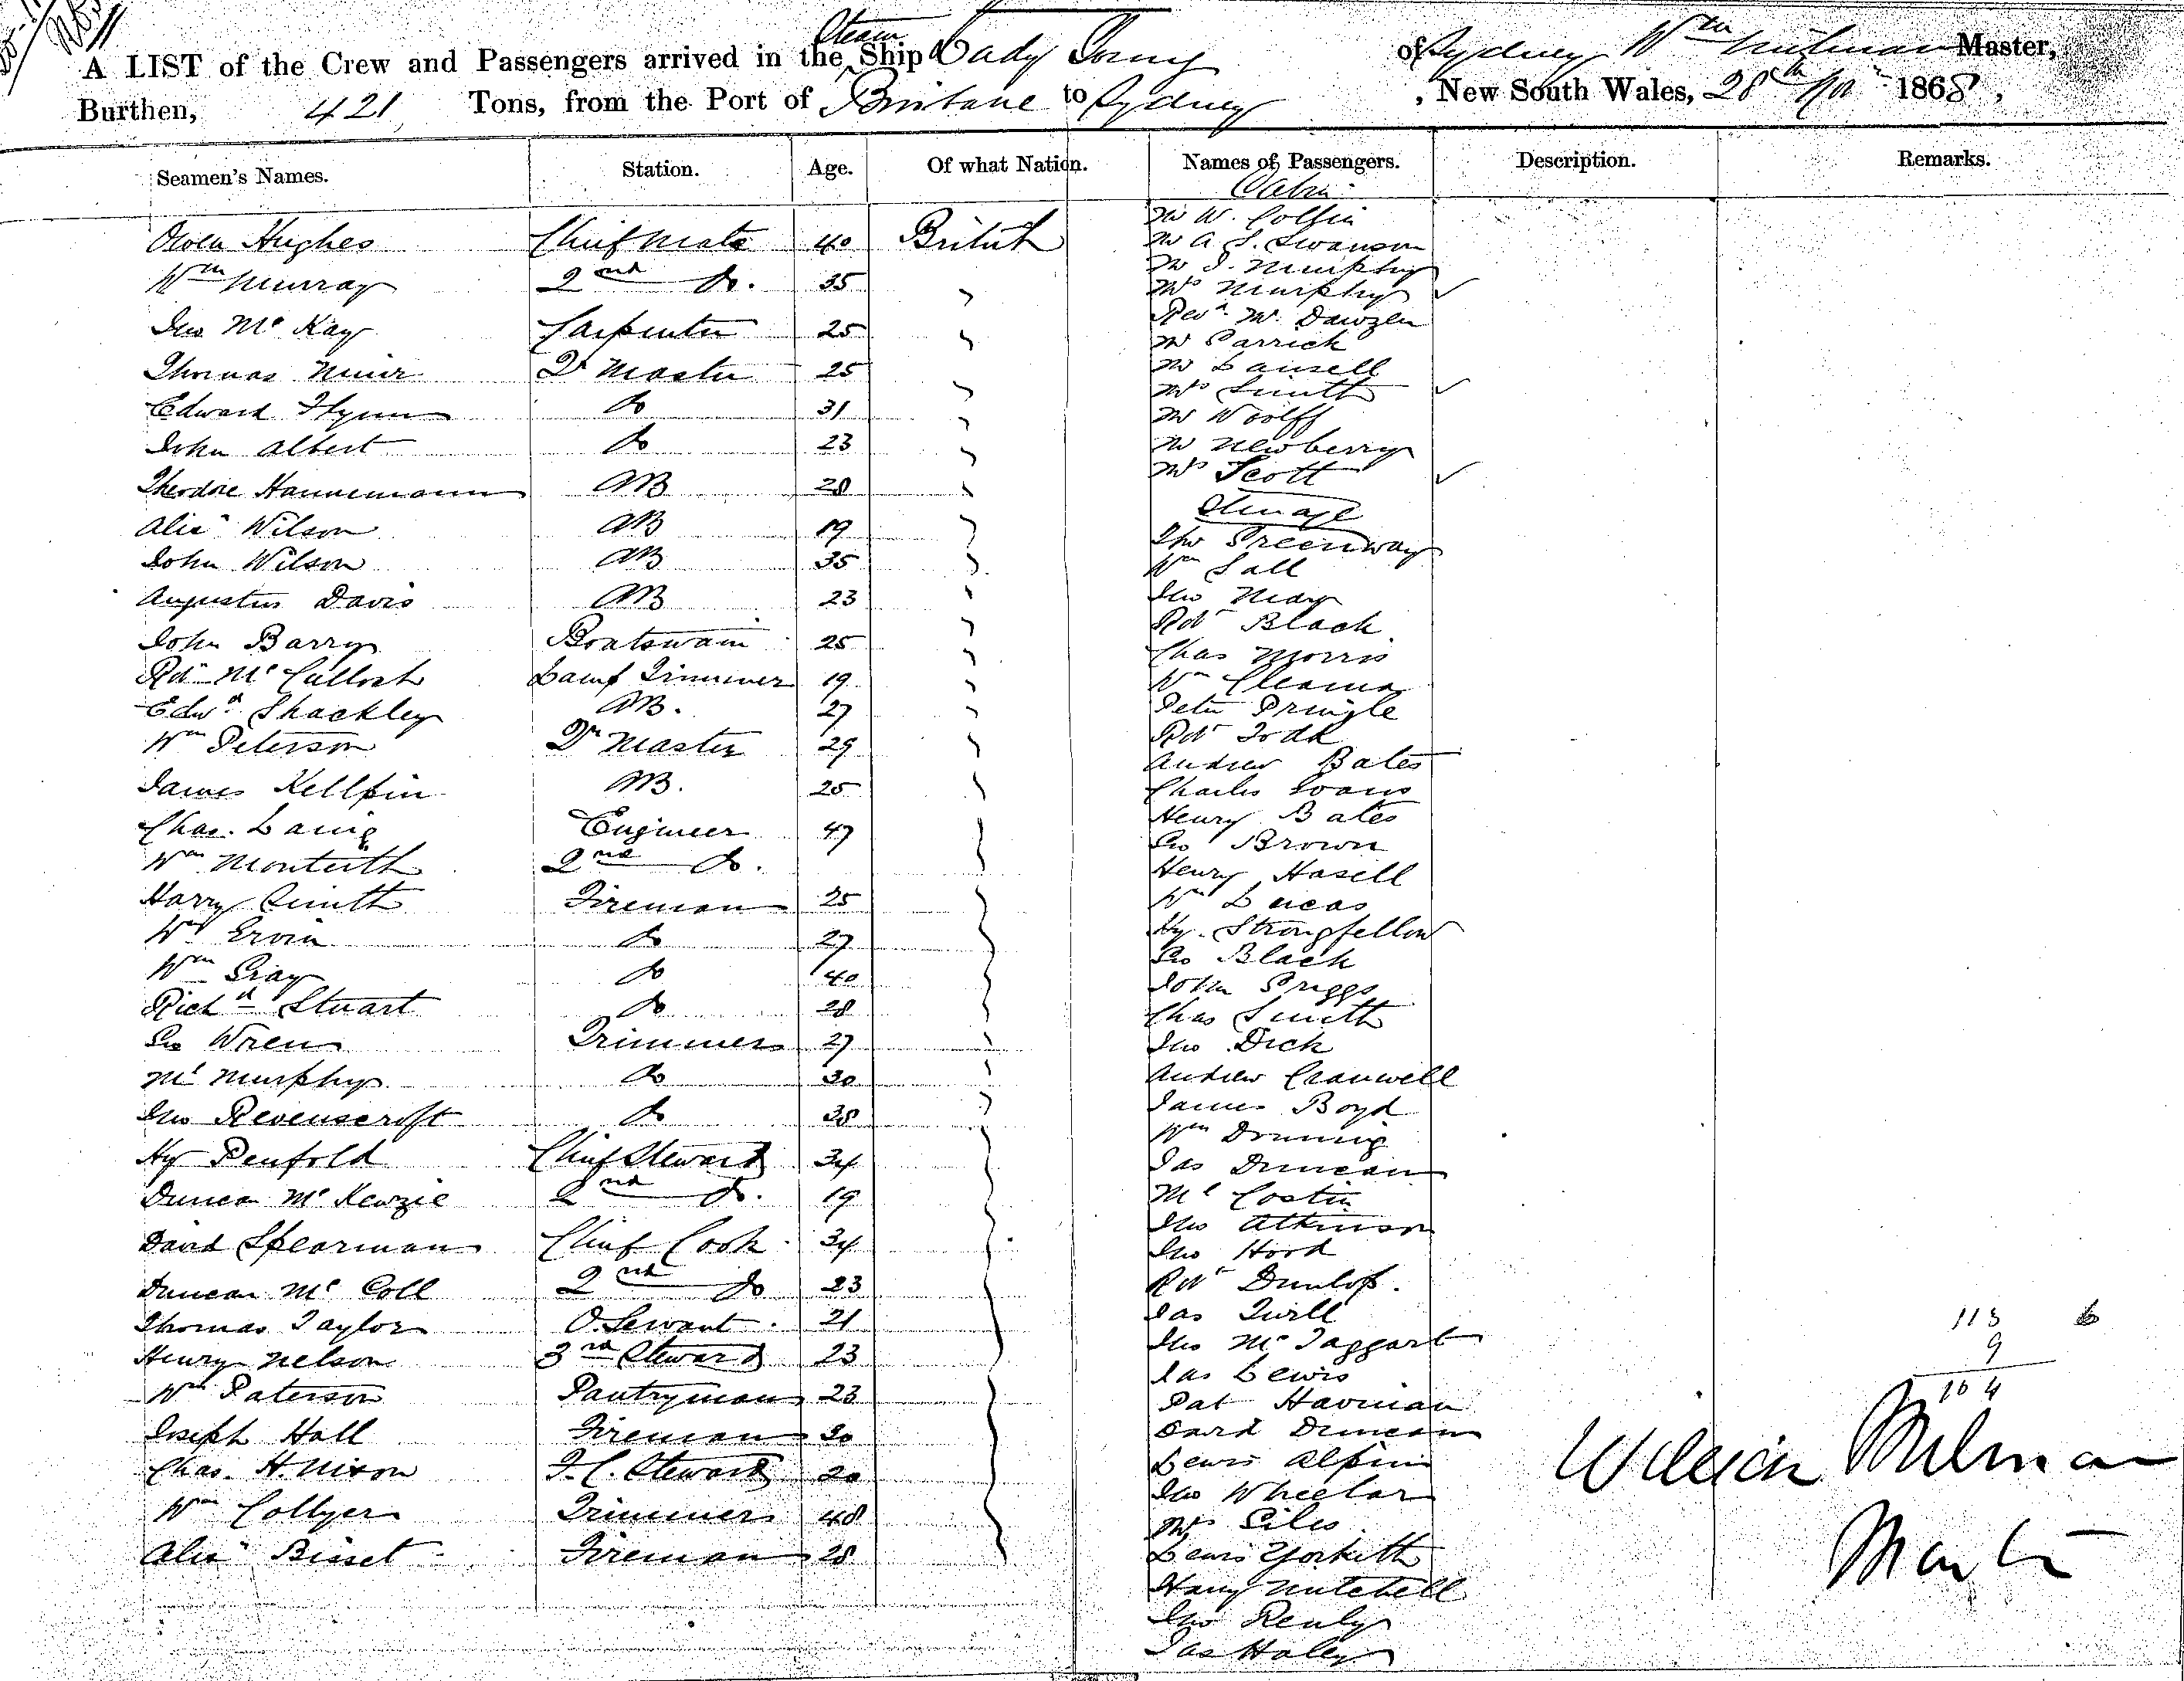 A LIST of the Crew and Passengers arrived in the Steam Ship Lady Young of Sydney Wm Milman Master,
Burthen, 421 Tons, from the Port of Brisbane to Sydney, New South Wales, 28th 1868,
Seamen's Names. Station. Age. Of what Nation. Names of Passengers. Description. Remarks.
Owen Hughes Chief Mate 40 British
Wm Murray 2nd Do. 35
Jno Mc Kay Carpenter 25
Thomas Muir Qr Master 25
Edward Flynn Do 31
John Albert Do 23
Theodore Hannemann AB 28
Alexr Wilson AB 19
John Wilson AB 35
Augustus Davis AB 23
John Barry Boatswain 25
Robt Mc Culloch Lamp Trimmer 19
Edwd Shackley AB. 27
Wm Peterson Qr Master 29
James Kellpin AB. 25
Chas. Laing Engineer 47
Wm Monteith 2nd Do.
Harry Smith Fireman 25
Wm Ervin Do 27
Wm Gray Do 40
Richd Stuart Do 28
Geo Wren Trimmer 27
Ml Murphy Do 30
Jno Revenscroft Do 38
Hy Penfold Chief Steward 34
Duncan Mc Kenzie 2nd Do. 19
David Spearman Chief Cook 34
Duncan Mc Coll 2nd Do 23
Thomas Taylor O. Servant. 21
Henry Nelson 3rd Steward 23
Wm Paterson Pantryman 23
Joseph Hall Fireman 30
Chas. H. Nixon F.C. Steward 20
Wm Collyer Trimmer 48
Alexr Bisset Fireman 28
Cabin
Mr W. Coffin
Mr A. S. Swanson
Mr J. Murphy
Mrs Murphy ✓
Revd Mr
Mr Carrick
Mr Lansell
Mrs Smith ✓
Mr Woolff
Mr Newberry
Mrs Scott ✓
Steerage
Tho Greenway
Wm Sall
Jno May
Robt Black
Chas Morris
Wm
Peter Pringle
Robt Todd
Andrew Bates
Charles Evans
Henry Bates
Geo Brown
Henry Hasell
Wm Lucas
Hy. Strongfellow
Geo Black
John Griggs
Chas Smith
Jno Dick
Andrew Cranwell
James Boyd
Wm
Jas Duncan
Ml Costin
Jno Atkinson
Jno Hood
Robt Dunlop.
Jas Twill
Jno Mc Taggart
Jas Lewis
Pat Harman
David Duncan
Lewis Alpin
Jno Wheelar
Mrs Giles
Lewis
Harry Mitchell
Jno Renly
Jas Haley
113
9
104
William Milman
Master